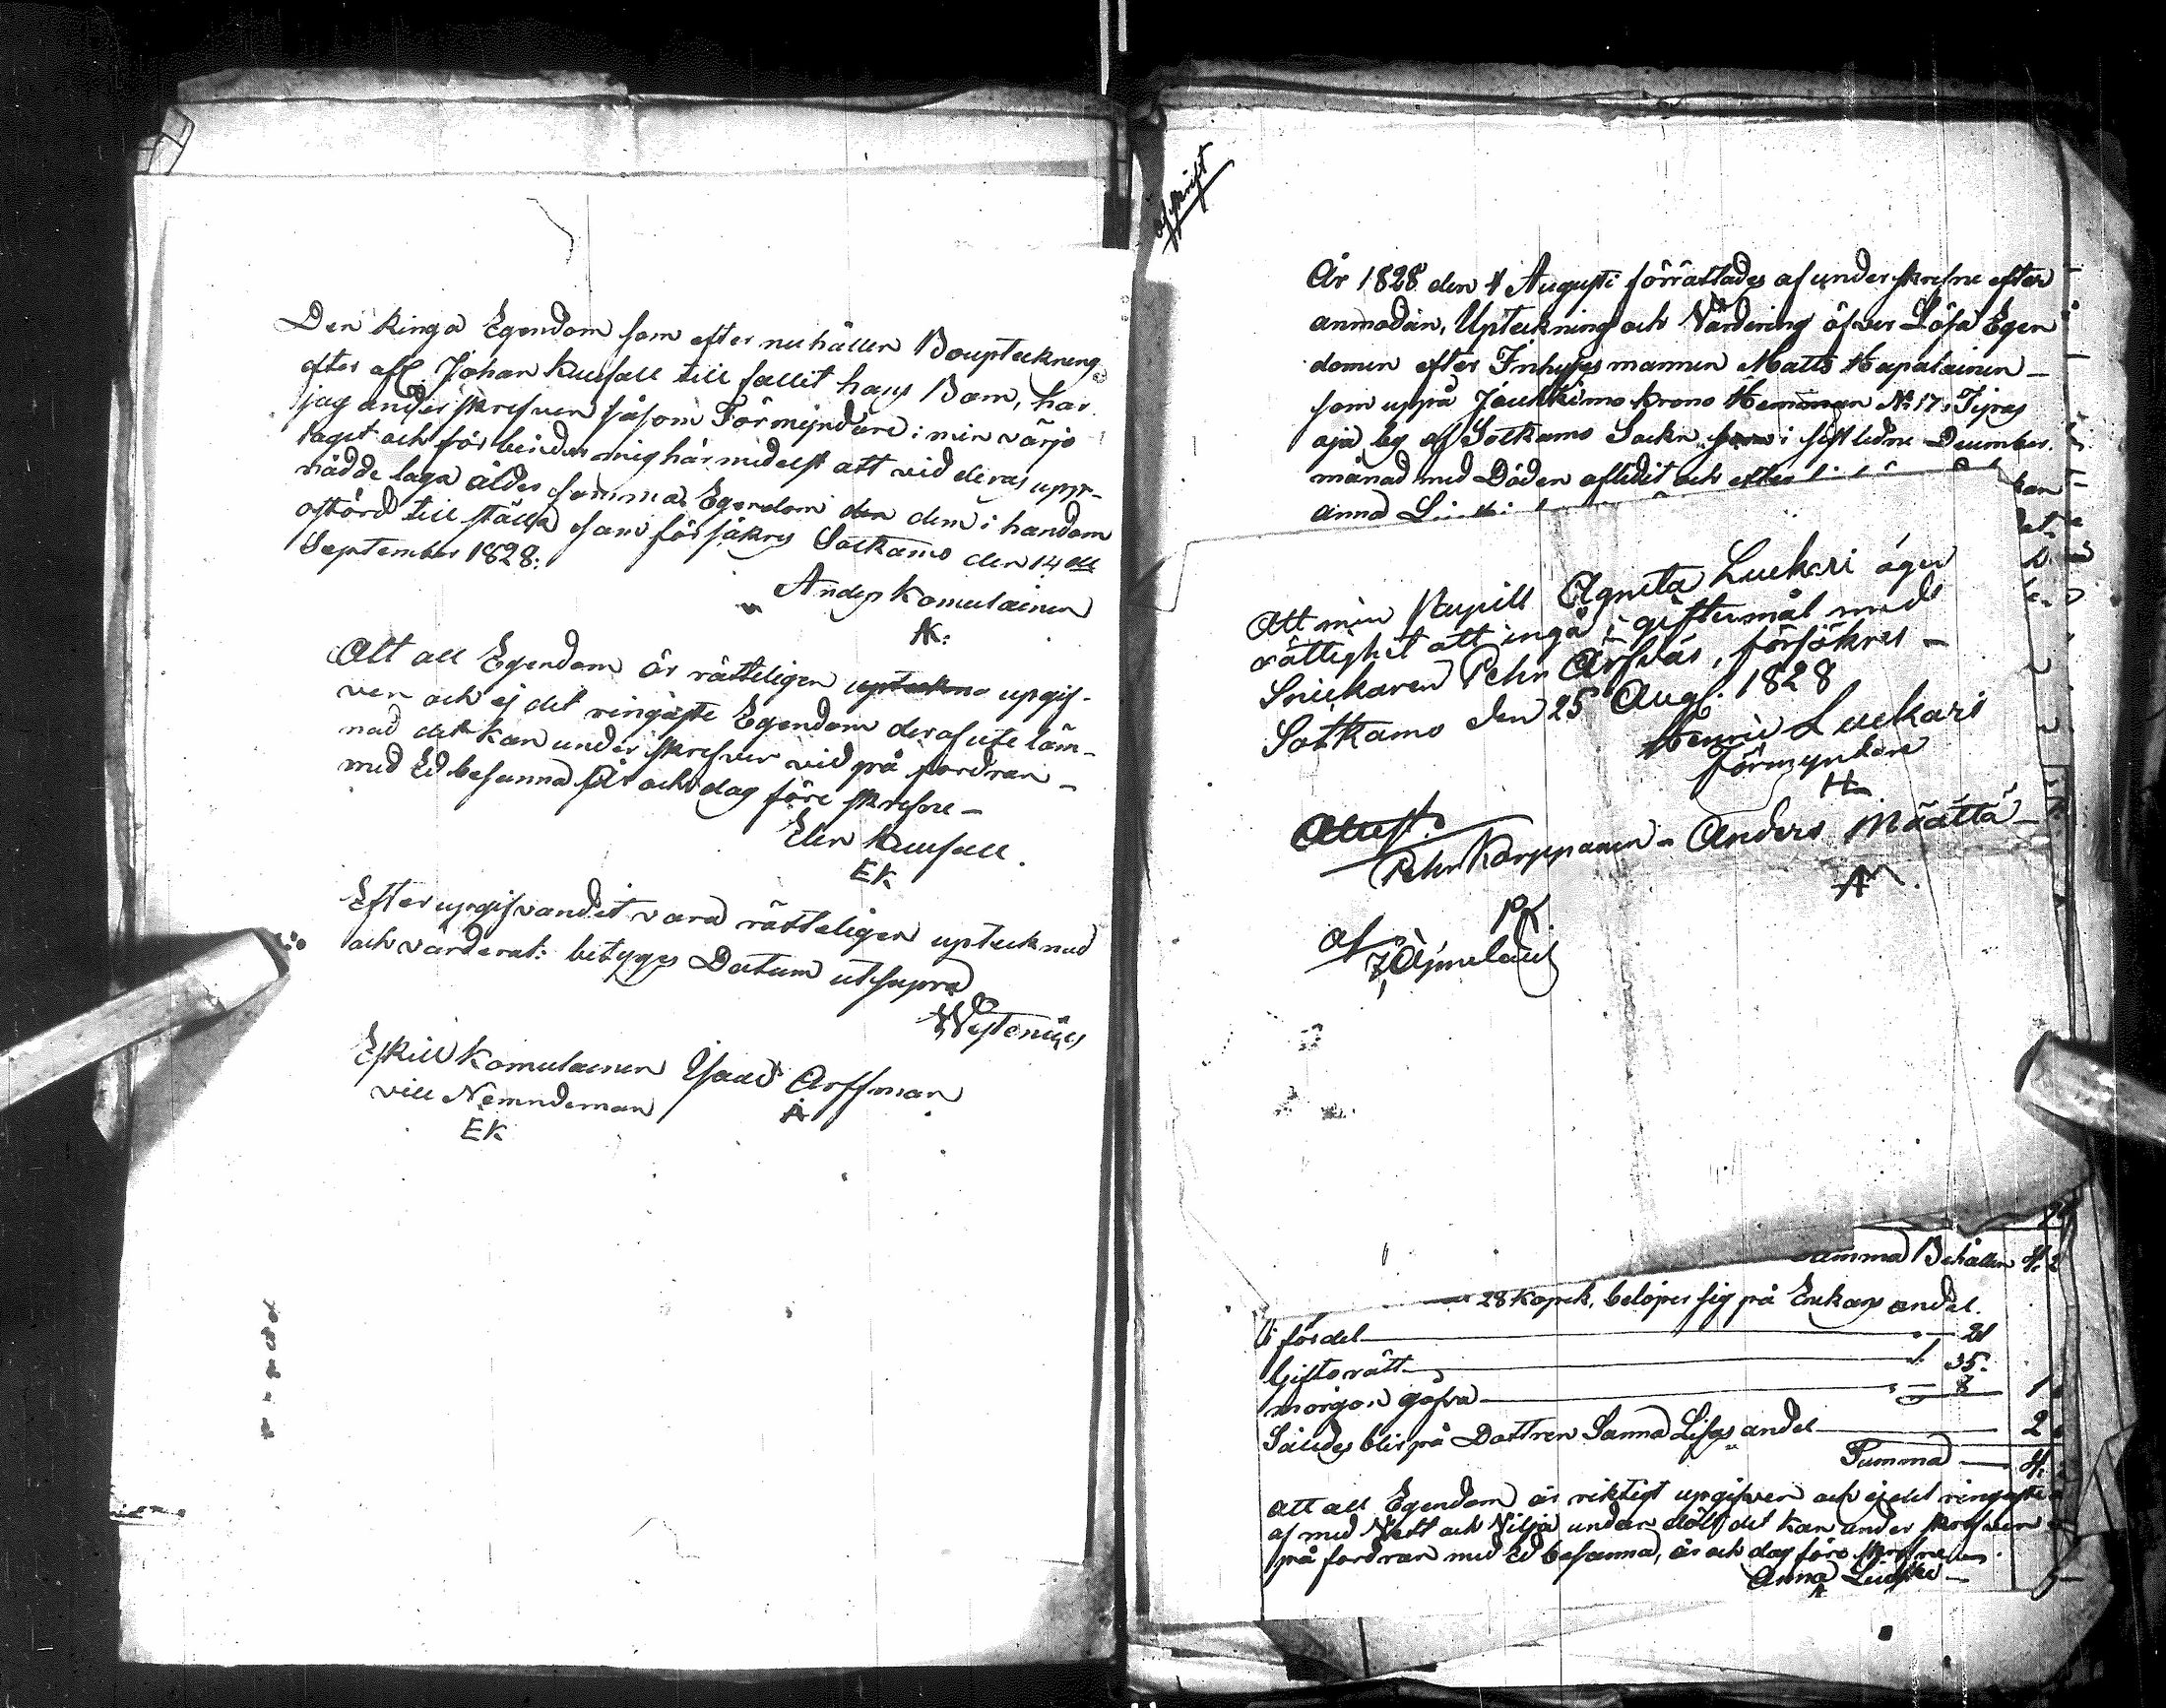 Den ringa Egendom som efter nuhållen Bouptekning
efter afl. Johan Kuusall till fallit hans Barn, har
jag underskrefven såsom Förmyndare i min värjo
taget och förbinder mig härmedelst att vid deras upp-
nådde laga ålder samma Egendom den dem i handom
ostörd till ställa som försäkras Sotkamo den 14de
September 1828.
Anders Komulainen
AK.
Att all Egendom är rätteligen uptekna upgif-
ven och ej det ringaste Egendom deraf ute läm-
nad det kan underskrefven vid på fordran
med Ed besanna År och dag före skrefne
Elin Kuusall.
EK
Efter upgifvandet vara rätteligen uptecknad
och värderat: betyges Datum utsupra
Westenius
Eskill Komulainen Isaac Arffman
vice Nemndeman
EK
Afskrift
År 1828 den 4 Augusti förrättades af underskrefne efter
anmodan, Uptekning och Värdering öfver Lösa Egen
domen efter Inhyses mannen Matts Hapalainen
som uppå Jauhkimo krono Hemman No 17 i Tipas
oja by af Sotkamo Sockn i sistledne December
månad med Döden aflidit och efter
anna
Att min Pupill Agneta Luckari äger
rättighet att ingå i giftermål med
Snickaren Pehr Arfvås, försäkres
Sotkamo den 25 Aug. 1828
Henric Luckari
förmyndare
H
Attest.
Pehr Karppanen Anders Määttä
PK.
Summa Behållen 4.
28 Kopek, belöper sig på Enkans andel.
i fördel 21
Giftorätt 1. 35.
morgon gåfva 8 1
Således blir på Dottren Sanna Lisas andel 2
Summa 4.
Att all Egendom är riktigt upgifven och ej det ringaste
af med Vett och Vilja undandölt det kan under skrefven
på fordran med Ed besanna, år och dag före skrefne
Anna